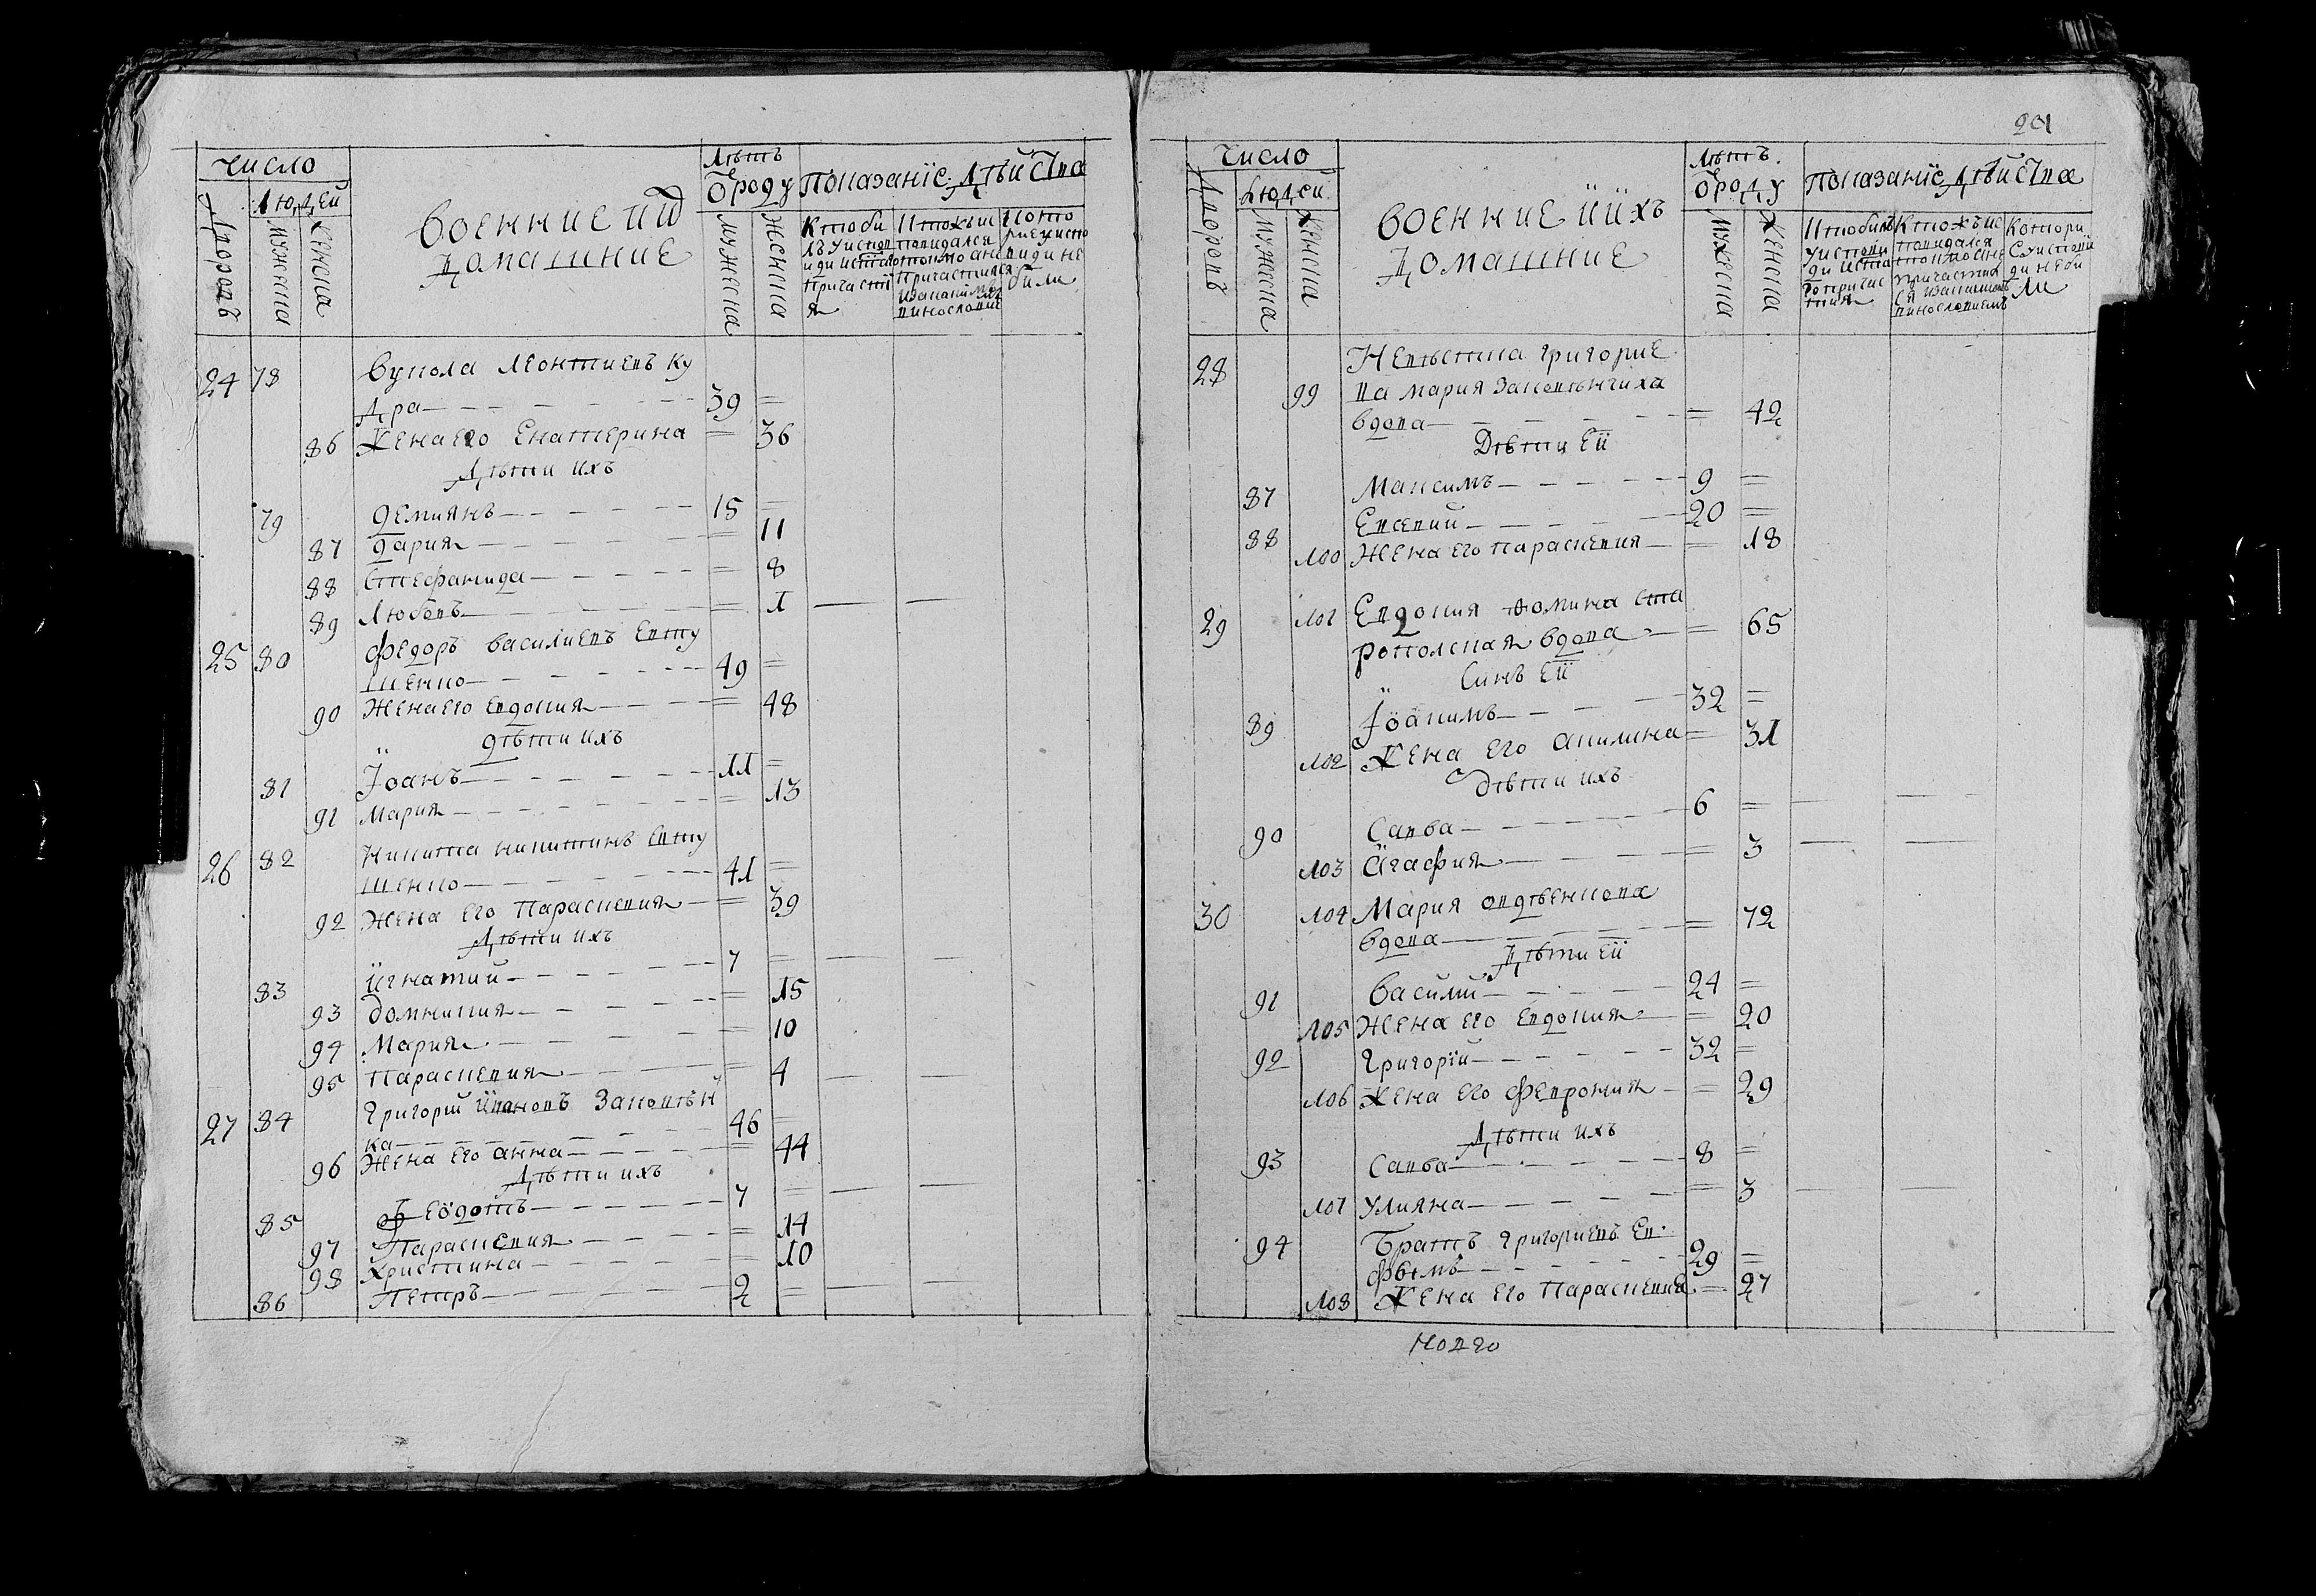 число
Людей
Дворовъ
мужеска
женска
военние ииъ
домашние
Лѣтъ
ѿроду
мужеска
женска
показанїе дѣйства
Кто би
лъ у испов
иди и с̃таго
причасти
я
Кто же ис
повидался
токмо а не
причастился
и за какимъ
винословие
Кото
рие у испо
види не
били
24 78 вукола Леонтиевъ ку
дра 39 =
86 Жена его Екатерина = 36
Дѣти ихъ
79 демиянъ 15 =
87 дария = 11
88 Стефанида = 8
89 Любовъ = 1
25 80 федоръ василиевъ Евту
шенко 49 =
90 Жена его Евдокия = 48
дѣти ихъ
81 Їоанъ 11 =
91 Мария = 13
26 82 Никита никитинъ Евту
шенко 41 =
92 Жена его Параскевия = 39
Дѣти ихъ
83 Игнатий 7 =
93 домникия = 15
94 Мария = 10
95 Параскевия = 4
27 84 Григорий Ивановъ Заковѣй
ка 46 =
96 Жена его анна = 44
Дѣти ихъ
85 Феодотъ 7 =
97 Параскевия = 14
98 Христина = 10
86 Петръ 2 =
201
число
Людей
Дворовъ
мужеска
Женска
военние и ихъ
домашние
Лѣтъ
ѿроду
мужеска
женска
показанїе дѣйства
Кто билъ
у испови
ди и ста
го причас
тия
Кто же ис
повидался
токмо а не
причастил
ся и за какимъ
винословиемъ
Котори
е у испови
ди не би
ли
28 Невѣстка григорие
99 ва мария Заковѣнчиха
вдова = 42
Дѣти Ей
87 Максимъ 9 =
88 Евсевий 20 =
100 Жена его параскевия = 18
29 101 Евдокия фомина ста
рополская вдова = 65
Синъ Ей
89 Їоакимъ 32 =
102 Жена его акилина = 31
Дѣти ихъ
90 Савва 6 =
103 Агафия = 3
30 104 Мария авдѣенкова
вдова = 72
Дѣти Ей
91 василий 24 =
105 Жена его Евдокия = 20
92 Григорїй 32 =
106 Жена его Феврония = 29
Дѣти ихъ
93 Савва 8 =
107 Улияна = 3
94 Братъ григориевъ Ев
фимъ 29 =
108 Жена его Параскевия = 27